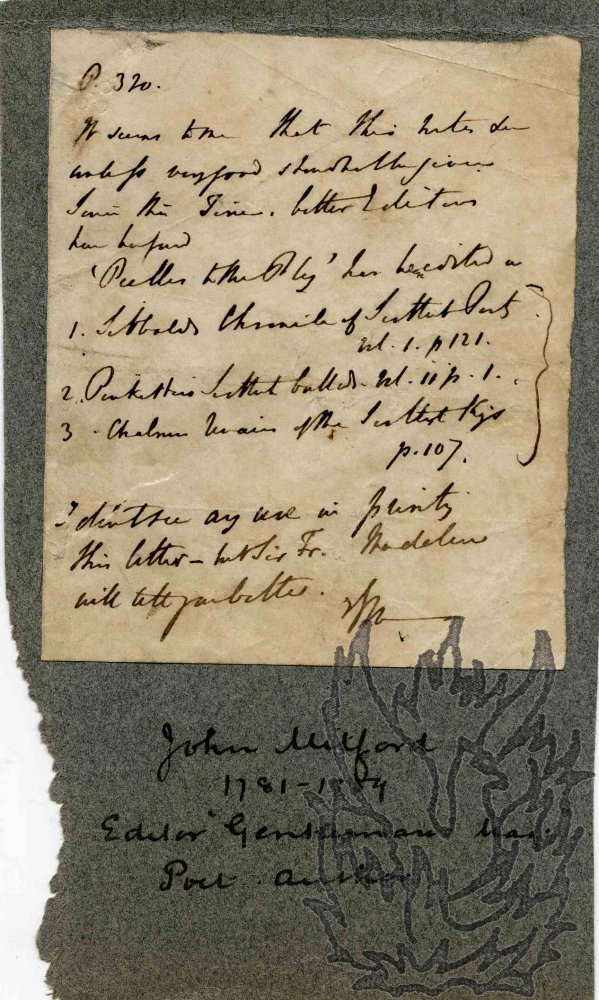 P. 320.
It seems to me that this
unless very good should be given
Since this Time. better Editions
have
'Peebles to the Play' has been edited in
1. Sibbald's Chronicle of Scottish Poetry
vol. 1. p 121.
2. Pinkerton's Scottish ballads. vol. ii p. 1.
3. Chalmers Remains of the Scottish Kings
p. 107.
I don't see any use in printing
this letter – but Sir Fr. Madden
will tell you better.
John Mitford
1781-1859
Editor Gentleman's Mag.
Poet Author